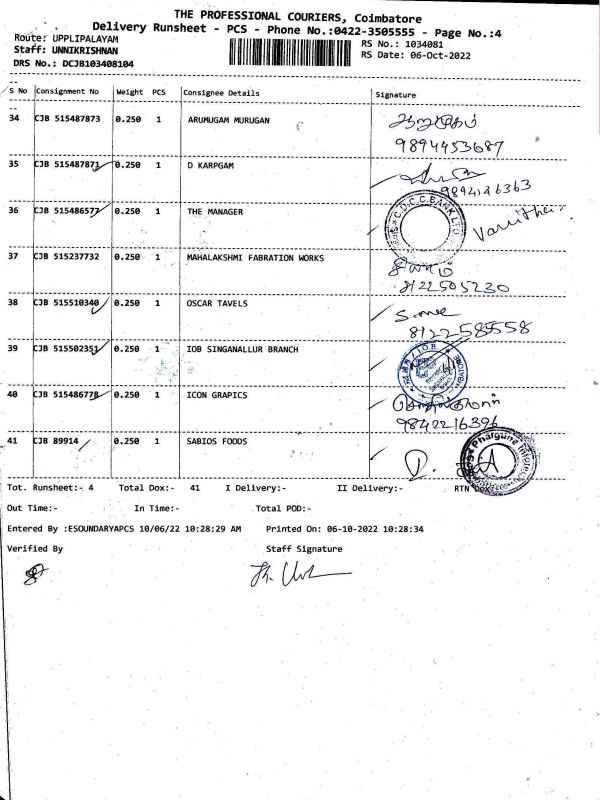 THE PROFESSIONAL COURIERS, Coimbatore
Delivery Runsheet - PCS - Phone No.:0422-3505555 - Page No.:4
Route: UPPLIPALAYAM RS No.: 1034081
Staff: UNNIKRISHNAN RS Date: 06-Oct-2022
DRS No.: DCJB103408104
S No Consignment No Weight PCS Consignee Details Signature
34 CJB 515487873 0.250 1 ARUMUGAM MURUGAN ஆறுமுகம்
9894453687
35 CJB 515487871 0.250 1 D KARPGAM
9894146363
36 CJB 515486577 0.250 1 THE MANAGER C.D.C.C.BANK LTD
37 CJB 515237732 0.250 1 MAHALAKSHMI FABRATION WORKS
8122505230
38 CJB 515510340 0.250 1 OSCAR TAVELS
8122585558
39 CJB 515502351 0.250 1 IOB SINGANALLUR BRANCH
40 CJB 515486778 0.250 1 ICON GRAPICS
9842216396
41 CJB 89914 0.250 1 SABIOS FOODS
Tot. Runsheet:- 4 Total Dox:- 41 I Delivery:- II Delivery:- RTN Dox
Out Time:- In Time:- Total POD:-
Entered By :ESOUNDARYAPCS 10/06/22 10:28:29 AM Printed On: 06-10-2022 10:28:34
Verified By Staff Signature